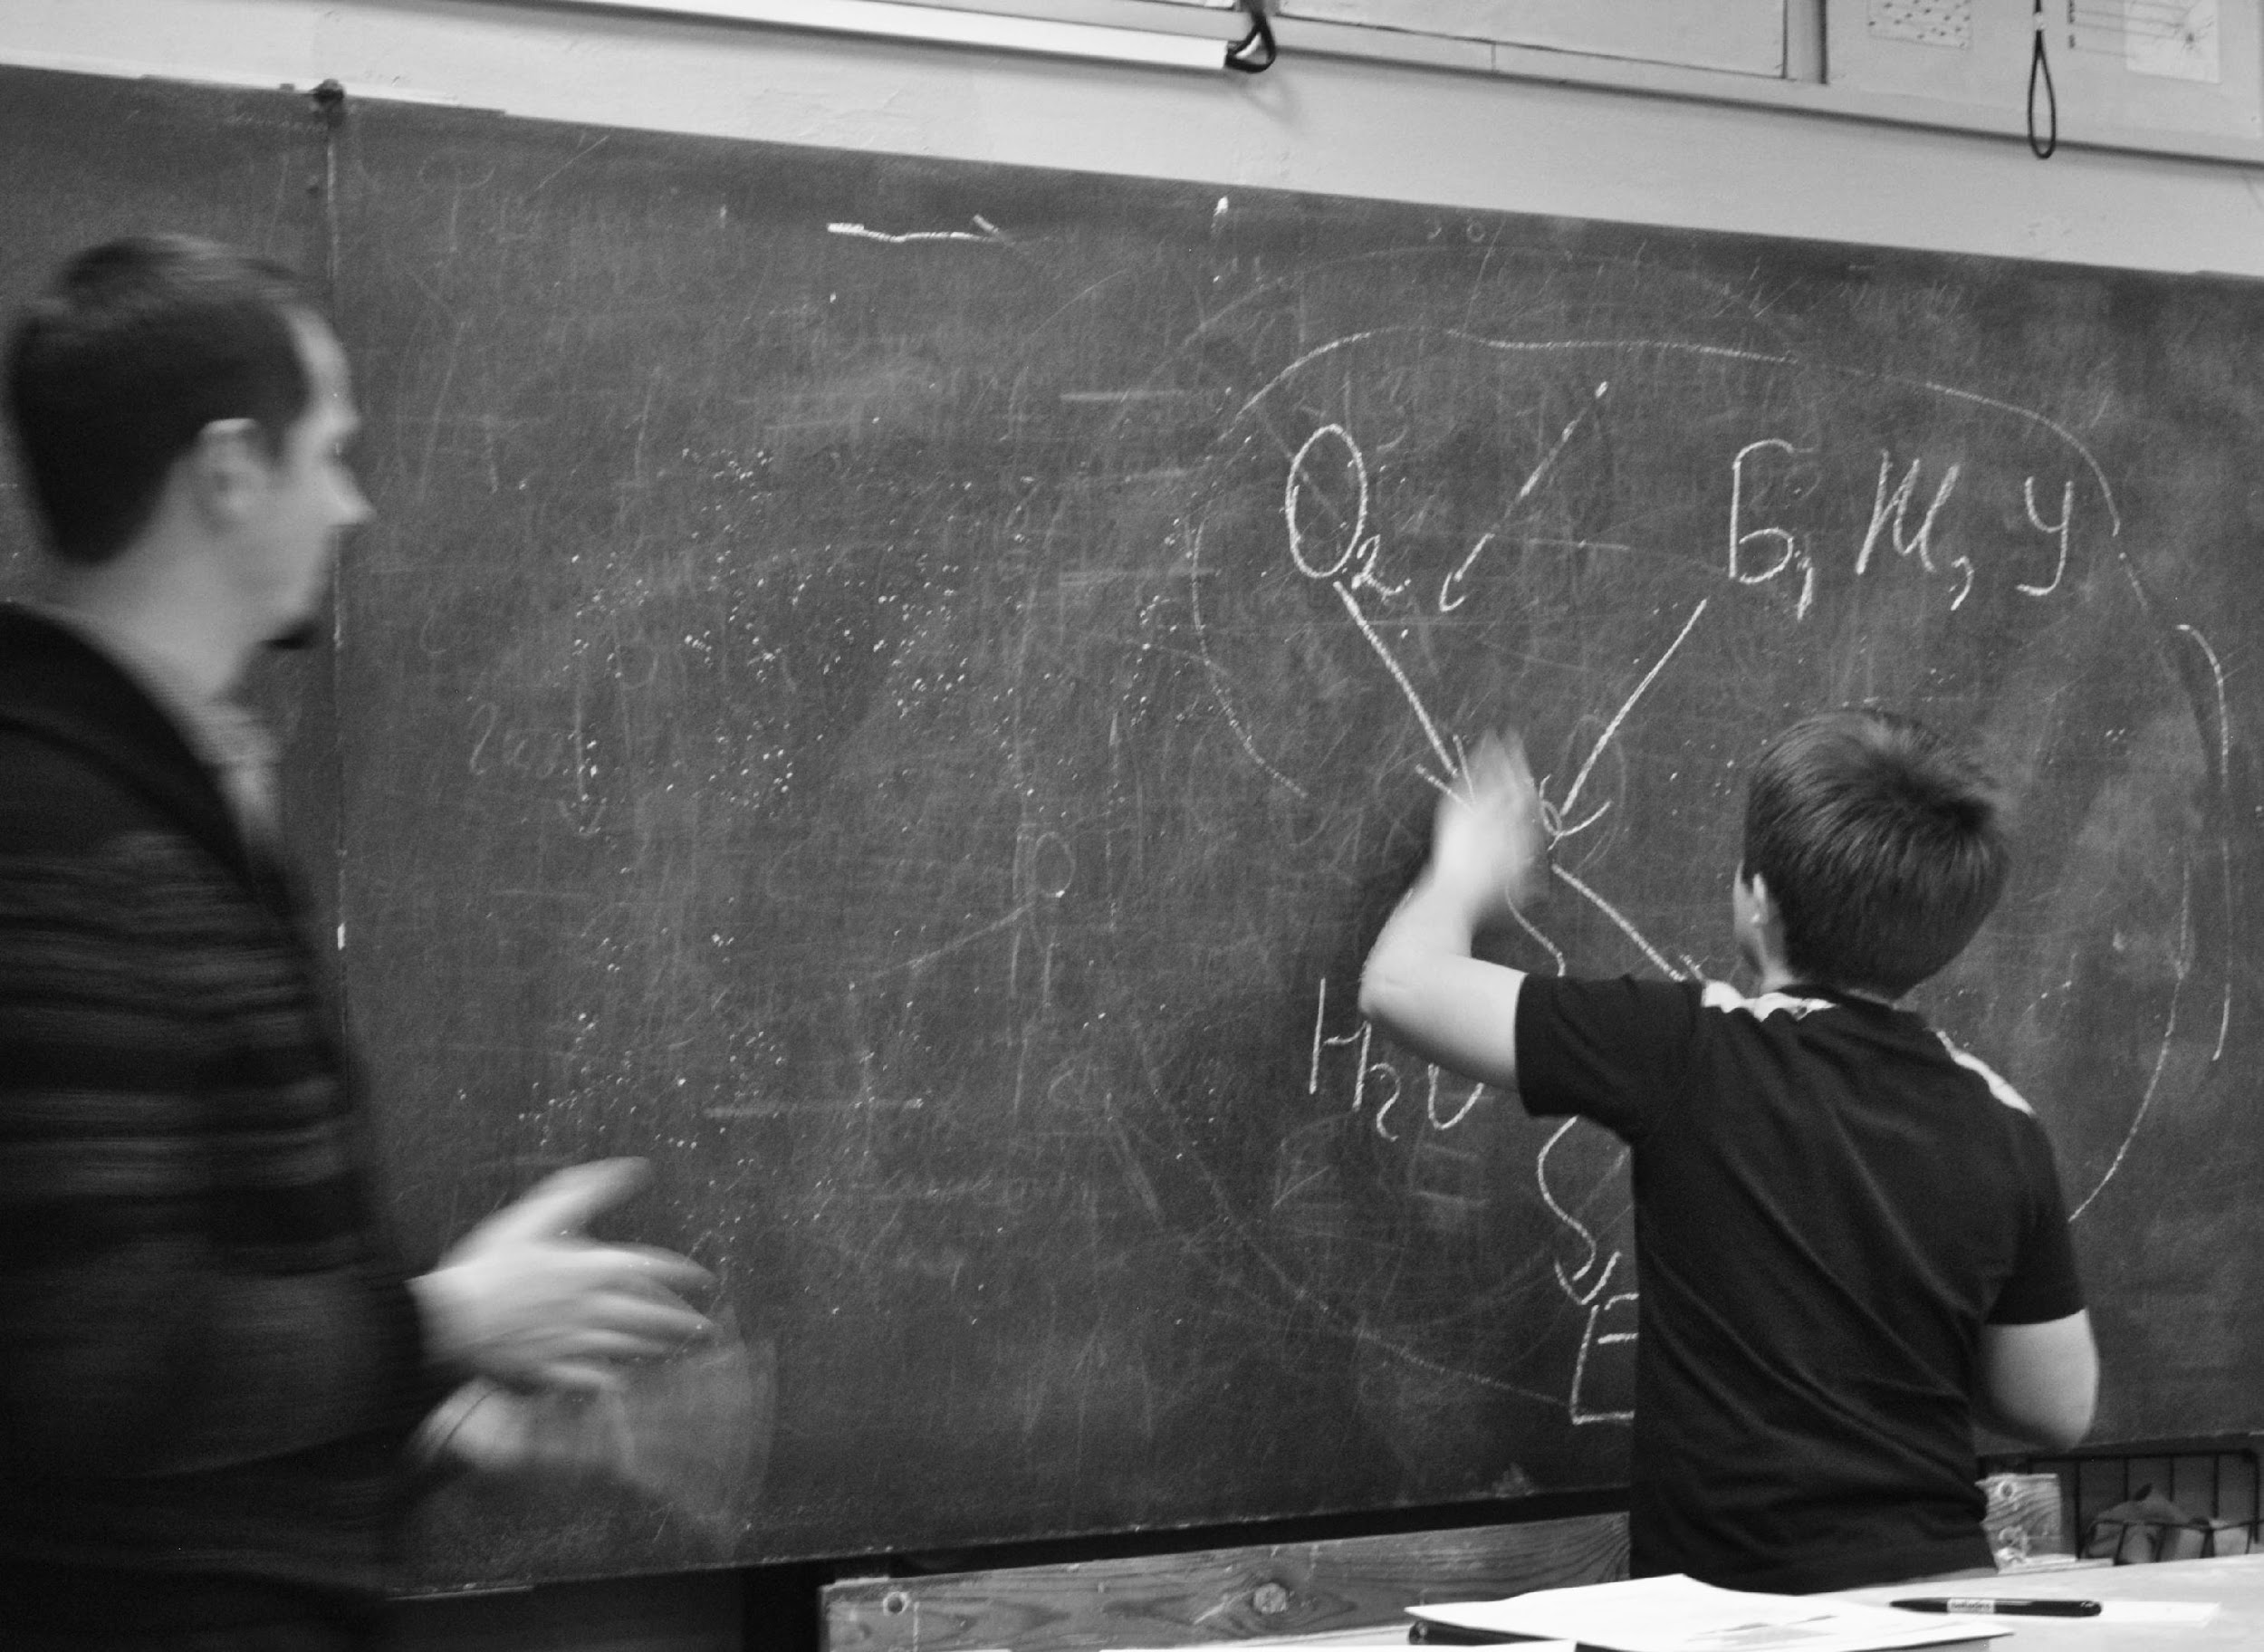 O₂ Б, Ж, У
H₂O
E